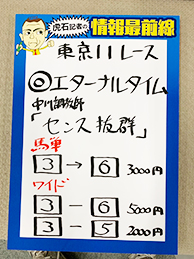 虎石記者の
情報最前線
東京11レース
◎エターナルタイム
中川調教師
「センス抜群」
馬単
3 → 6 3000円
ワイド
3 − 6 5000円
3 − 5 2000円